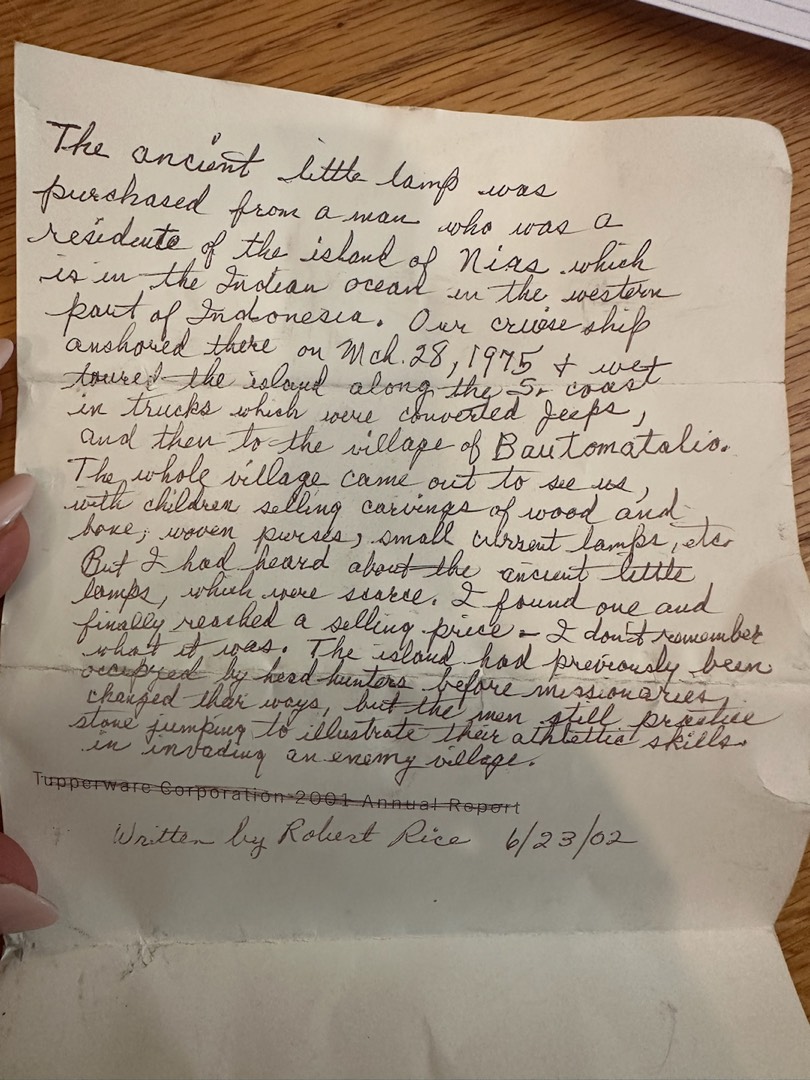 The ancient little lamp was
purchased from a man who was a
residente of the island of Nias which
is in the Indian ocean in the western
part of Indonesia. Our cruise ship
anshored there on Mch. 28, 1975 & wet
toured the island along the S. coast
in trucks which were converted Jeeps,
and then to the village of Bautomatalio.
The whole village came out to see us,
with children selling carvings of wood and
bone, woven purses, small current lamps, etc.
But I had heard about the ancient little
lamps, which were scarce. I found one and
finally reached a selling price - I don't remember
what it was. The island had previously been
occupyed by head hunters before missionaries
changed their ways, but the men still practice
stone jumping to illustrate their athlettic skills
in invading an enemy village.
Tupperware Corporation 2001 Annual Report
Written by Robert Rice 6/23/02